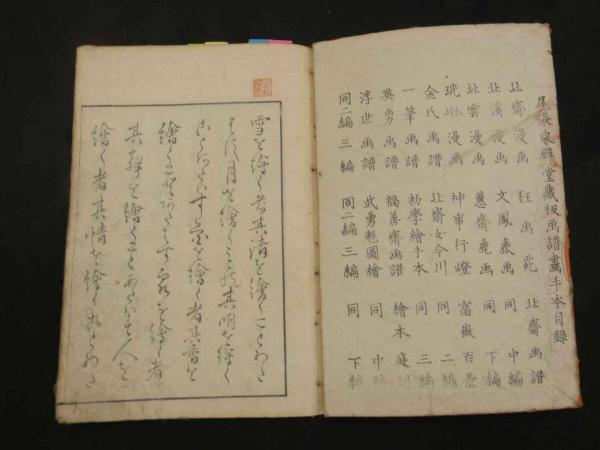 尾張東壁堂藏板画譜畫手本目録
北齋漫画 狂画苑 北齋画譜
北溪漫画 文鳳麁画 同 中編
北雲漫画 蕙齋麁画 同 下編
光琳漫画 神事行燈 富嶽百景
金氏画譜 北齋女今川 同 二編
一筆画譜 初學繪手本 同 三編
英勇画譜 福善齋画譜 繪本庭訓
浮世画譜 武勇魁圖繪 同 中編
同二編 三編 同二編 三編 同 下編
雪を繪く者其清を繪くことあた
はす月を繪く其明を繪く
ことあたはす花を繪く者其香を
繪くことあたはす泉を繪く者
其聲を繪くことあたはす人を
繪く者其情を繪くことあた